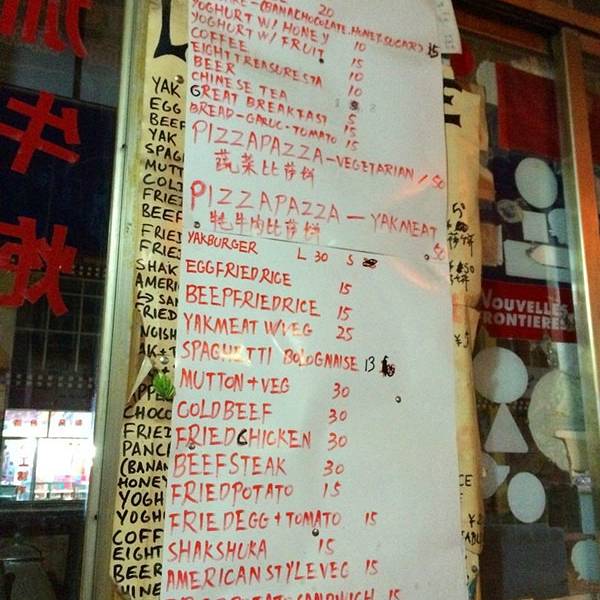 (BANACHOCOLATE.HONEY.SUGAR) 15
20
YOGHURT W/ HONEY 10
YOGHURT W/ FRUIT 15
COFFEE 10
EIGHT TREASURESTA 10
BEER
CHINESE TEA 5
GREAT BREAKFAST 15
BREAD-GARLIC-TOMATO 15
PIZZAPAZZA-VEGETARIAN / 50
蔬菜比萨饼
PIZZAPAZZA — YAKMEAT 50
牦牛肉比萨饼
YAKBURGER L 30 S
EGGFRIEDRICE 15
BEEPFRIEDRICE 15
YAKMEAT W/VEG 25
SPAGHETTI BOLOGNAISE 13
MUTTON+VEG 30
COLDBEEF 30
FRIEDCHICKEN 30
BEEFSTEAK 30
FRIEDPOTATO 15
FRIEDEGG+TOMATO 15
SHAKSHUKA 15
AMERICAN STYLEVEG 15
SANDWICH 15
YAK
EGG
BEEF
YAK
SPAG
MUTT
COL
FRIE
BEEF
FRIE
FRIE
SHAK
AMERI
SAN
FRIED
NGISH
CHOCO
FRIE
PANC
(BANAN
HONEY
YOGH
YOGH
COFF
EIGHT
BEER
HINE
NOUVELLES
FRONTIERES
¥5
牛
炮